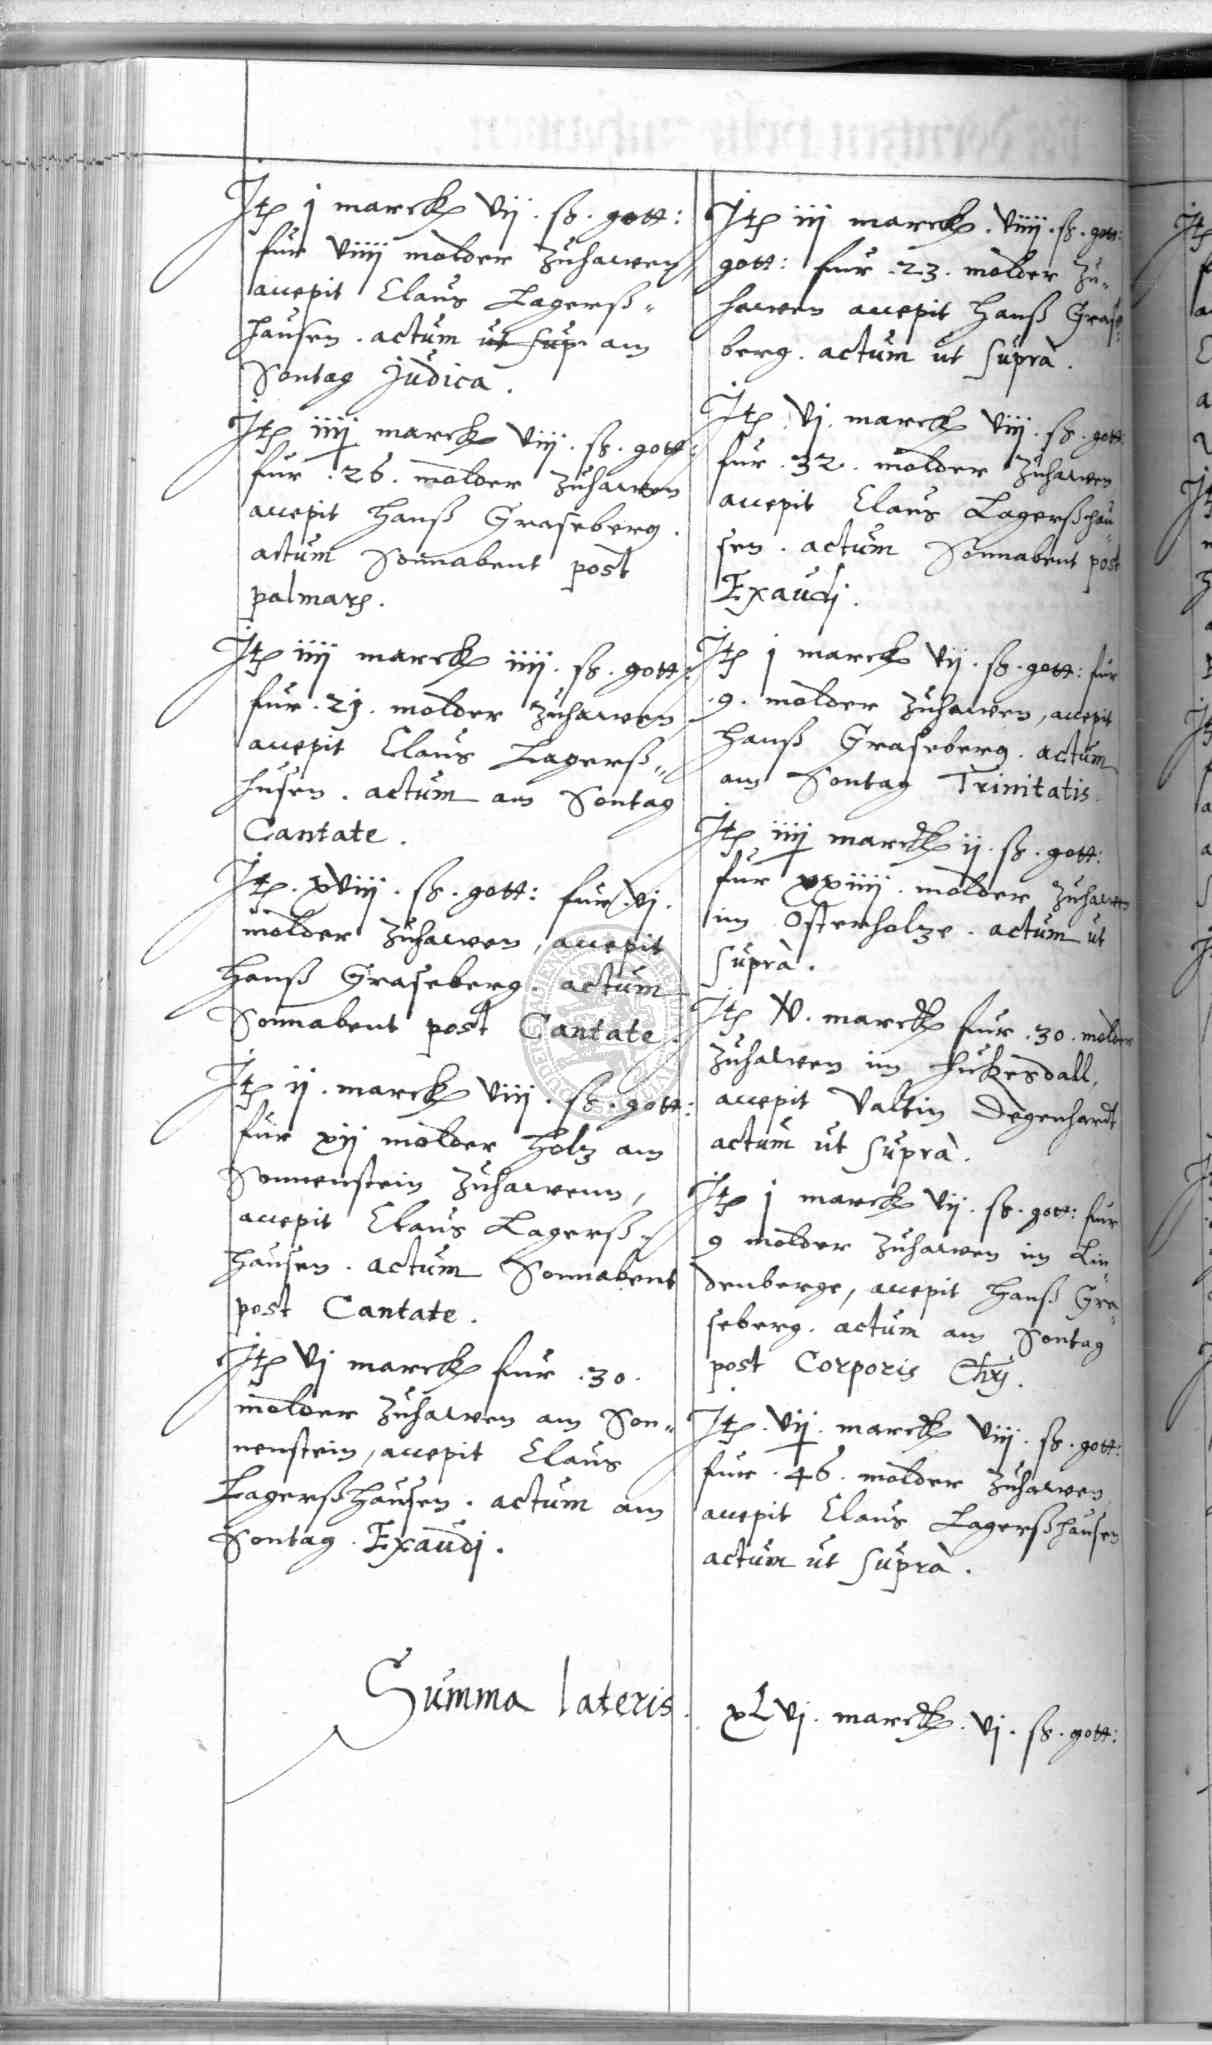 Itē j marck vij . ß . gott:
fur viiij molder zuhawen,
accepit Claus Lagerß-
hausen . actum ut sup am
Sontag Judica .
Itē iiij marck viij . ß . gott:
fur . 26 . molder zuhawen
accepit Hanß Graseberg .
actum Sonnabent post
palmarū .
Itē iiij marck iiij . ß . gott:
fur . 21 . molder zuhawen
accepit Claus Lagerß-
husen . actum am Sontag
Cantate .
Itē . xviij . ß . gott: fur . vj .
molder zuhawen, accepit
Hanß Graseberg . actum
Sonnabent post Cantate .
Itē ij . marck viij . ß . gott:
fur xij molder holz am
Sonnenstein zuhawenn,
accepit Claus Lagerß-
hausen . actum Sonnabent
post Cantate .
Itē vj marck fur . 30 .
molder zuhawen am Son-
nenstein, accepit Claus
Lagerßhausen . actum am
Sontag . Exaudj .
Itē iij marck . viiij . ß . gott:
gott: fur . 23 . molder zu-
hawen accepit Hanß Grase-
berg . actum ut suprà .
Itē . vj . marck viij . ß . gott:
fur . 32 . molder zuhawen
accepit Claus Lagerßhau-
sen . actum Sonnabent post
Exaudj .
Itē j marck vij . ß . gott: fur
. 9 . molder zuhawen, accepit
Hanß Graseberg . actum
am Sontag Trinitatis .
Itē iiij marck ij . ß . gott:
fur xxiiij . molder zuhawen
im Osterholze . actum ut
suprà .
Itē V . marck fur . 30 . molder
zuhawen im Hukesdall,
accepit Valtin Degenhardt
actum ut suprà .
Itē j marck vij . ß . gott: fur
9 molder zuhawen im Lin-
denberge, accepit Hanß Gra-
seberg . actum am Sontag
post Corporis Chrj .
Itē . vij . marck viij . ß . gott:
fur . 46 . molder zuhawen
accepit Claus Lagerßhausen
actum ut suprà .
Summa lateris . xLvj . marck . vj . ß . gott: